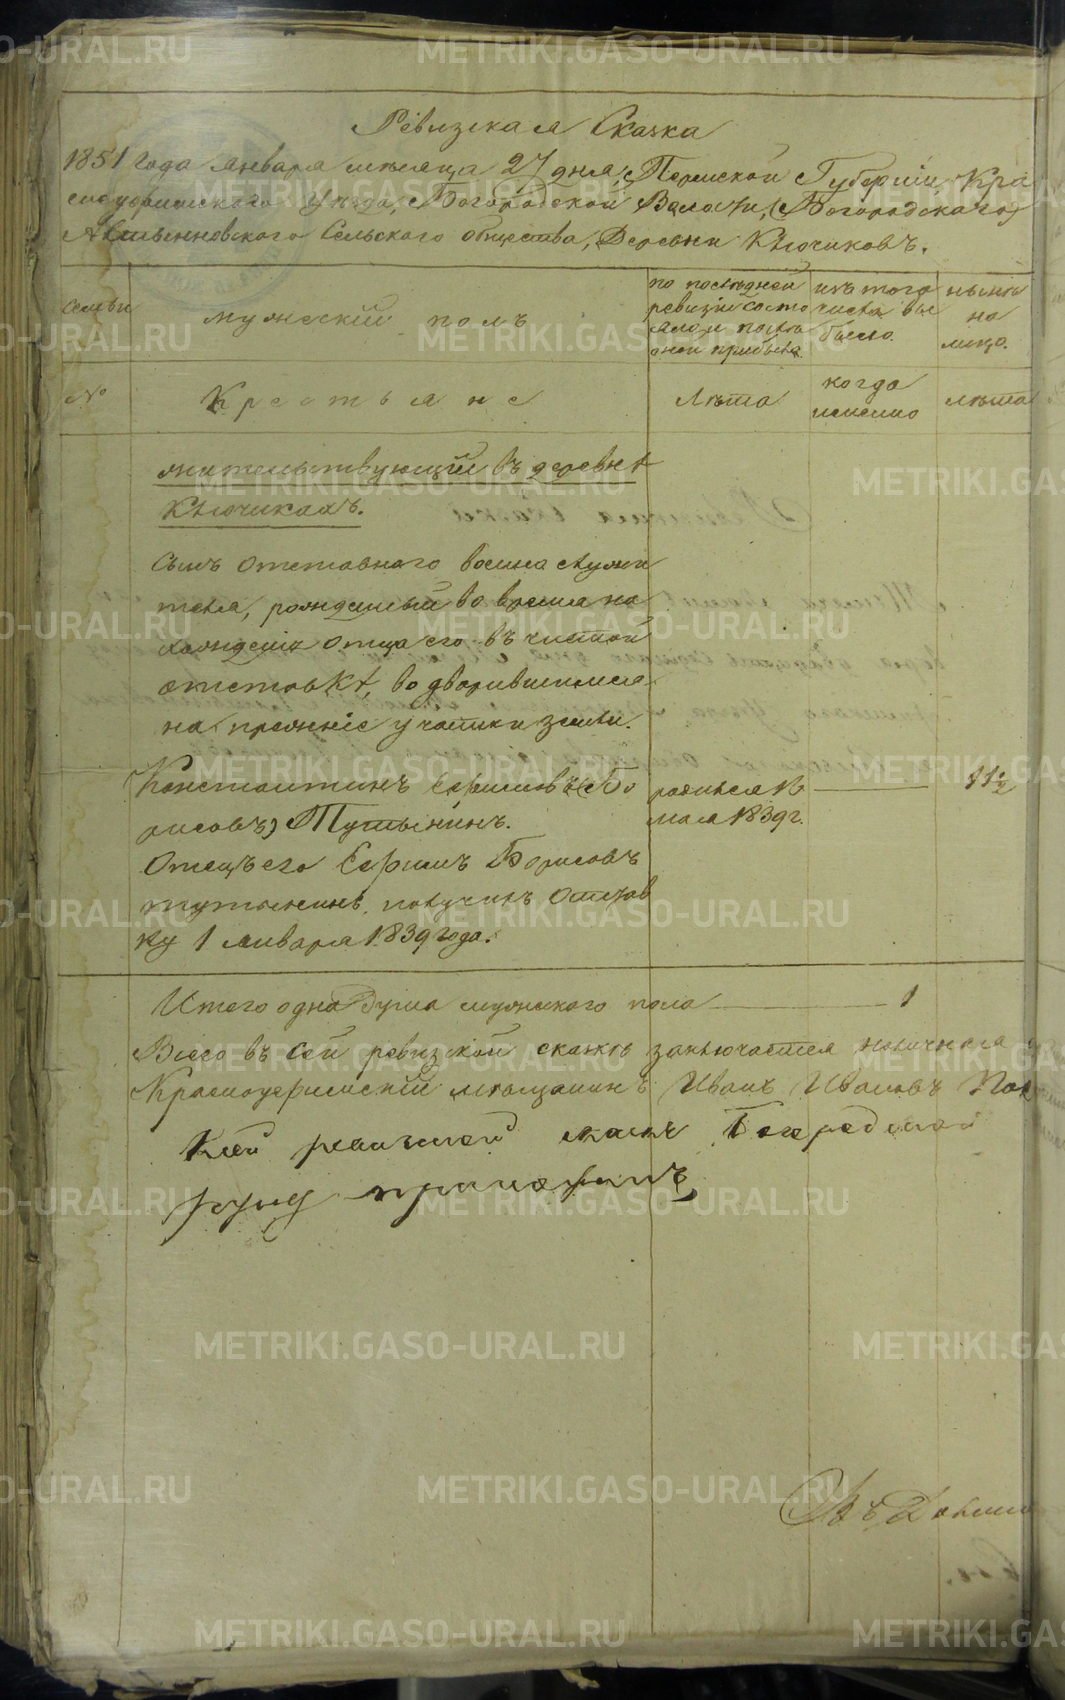 Ревизская Сказка
1851 года Января месяца 27 дня, Пермской Губернии Кра
сноуфимскаго Уезда, Богородской Волости, (Богородскаго)
Сельскаго общества, Деревни Ключиковъ.
Семьи
мужеский полъ
по последней
ревизии состо
яло и после
оной прибыло.
изъ того
числа вы
было.
ныне
на
лицо.
№
Крестьяне
Лѣта
когда
именно
лѣта
жительствующий въ деревнѣ
Ключикахъ.
Сынъ отставнаго воина служи
теля, рожденный во время на
хождения отца его въ чистой
отставкѣ, водворившимися
на прежние участки земли.
Константинъ Ефимовъ (Бо
рисовъ) Тутынинъ.
родился 16
мая 1839 г.
11 1/2
Отецъ его Ефимъ Борисовъ
Тутынинъ, получилъ отстав
ку 1 Января 1839 года.
Итого одна Душа мужескаго пола 1
Всего въ сей ревизской сказкѣ заключается наличнаго
Красноуфимский мѣщанинъ Иванъ Ивановъ
К сей ревизской скаске Богородской
руку приложилъ
METRIKI.GASO-URAL.RU